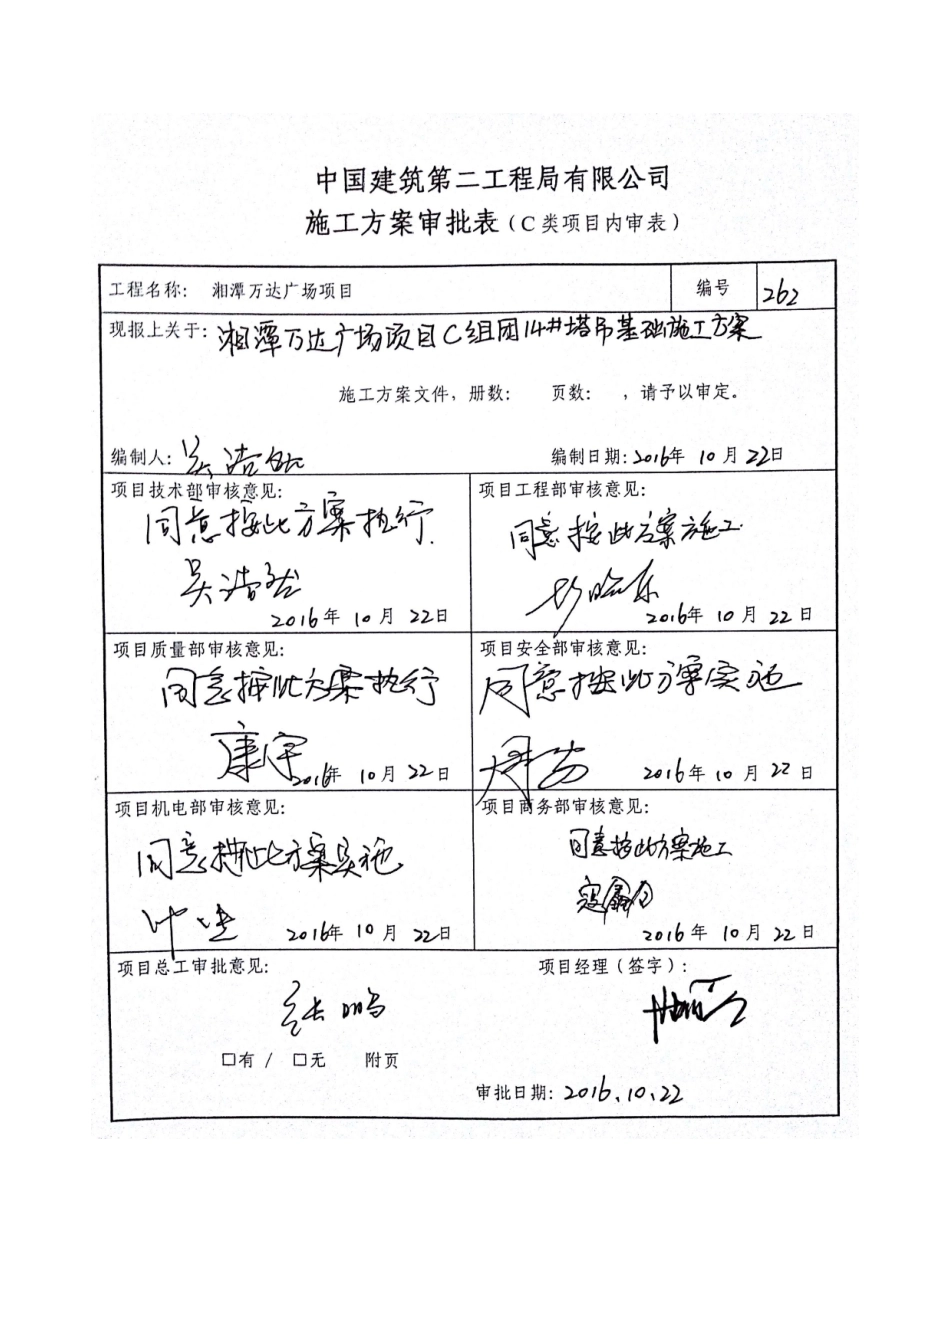 中国建筑第二工程局有限公司
施工方案审批表（C类项目内审表）
工程名称： 湘潭万达广场项目 编号 262
现报上关于：湘潭万达广场项目C组团14#塔吊基础施工方案
施工方案文件，册数： 页数： ，请予以审定。
编制人：吴浩 编制日期：2016年 10 月 22日
项目技术部审核意见：
同意按此方案执行.
吴浩
2016年 10 月 22日
项目工程部审核意见：
同意按此方案施工
2016年 10 月 22日
项目质量部审核意见：
同意按此方案执行
康宇
2016年 10 月 22日
项目安全部审核意见：
同意按此方案实施
周
2016年 10 月 22日
项目机电部审核意见：
同意按此方案实施
叶
2016年 10 月 22日
项目商务部审核意见：
同意按此方案施工
2016年 10 月 22日
项目总工审批意见：
张鹏
□有 / □无 附页
项目经理（签字）：
审批日期：2016.10.22